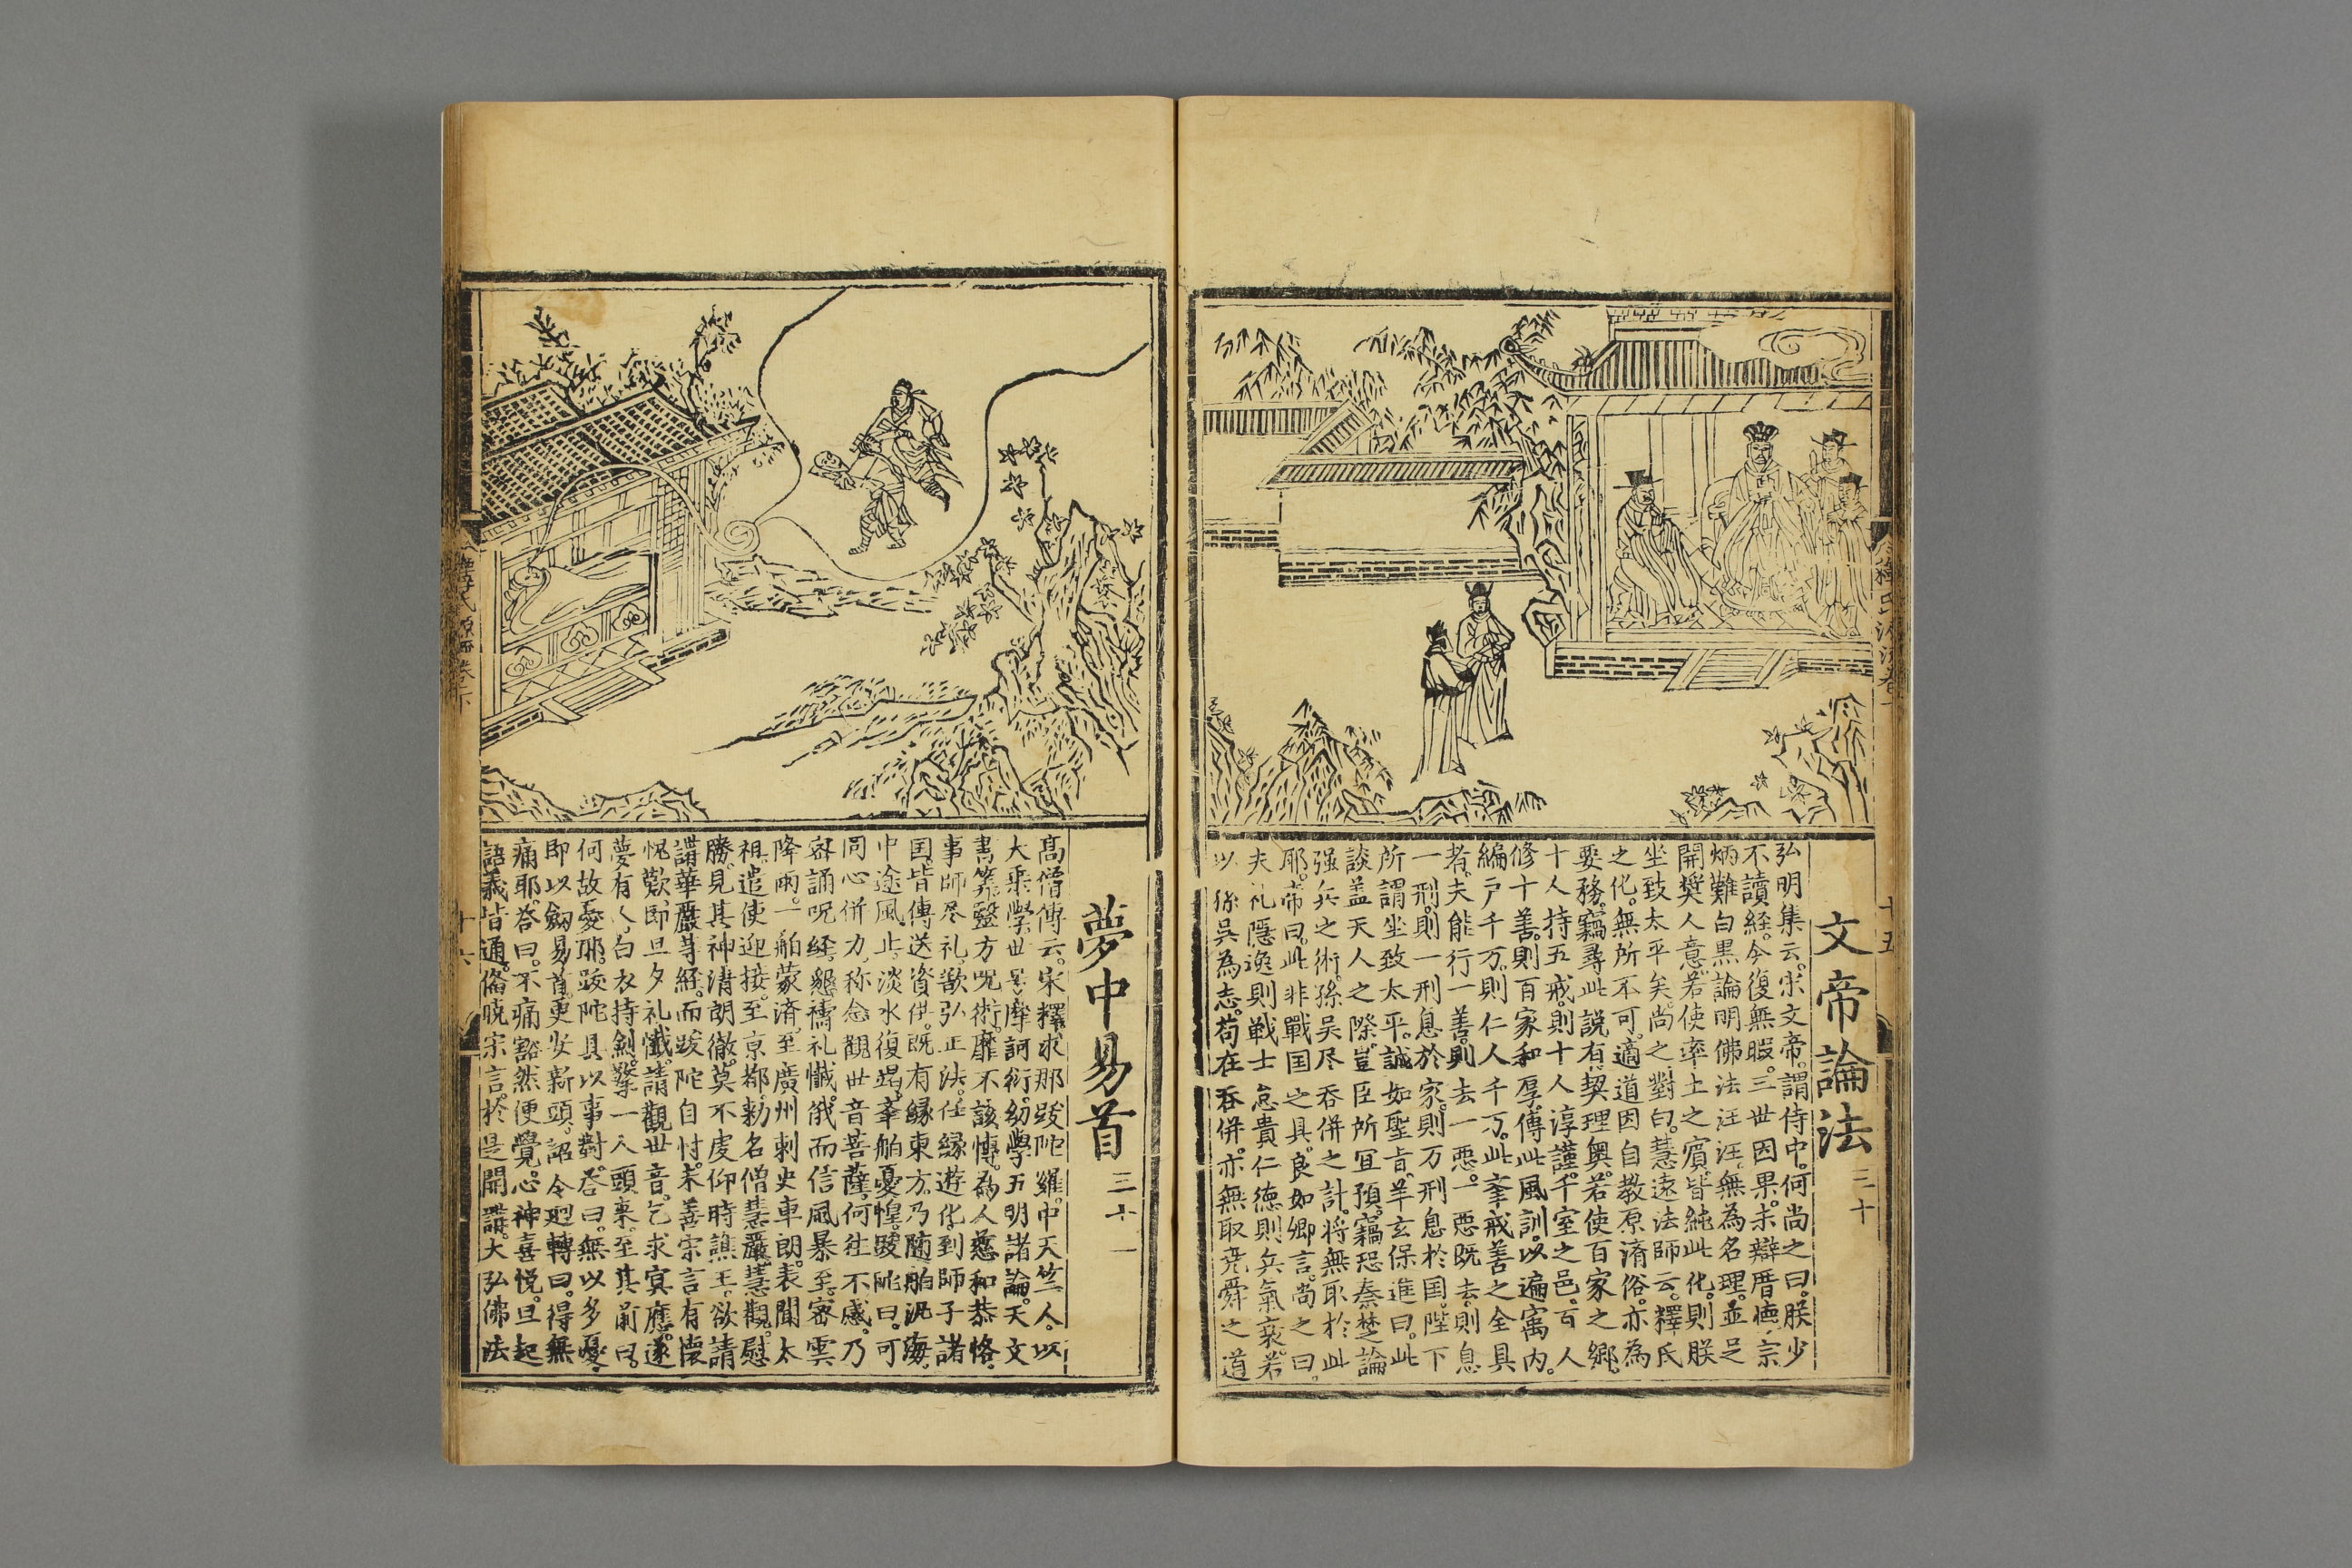 文帝論法 三十
弘明集云。宋文帝。謂侍中。何尚之曰。朕少
不讀經。今復無暇。三世因果。未辯厝懷。宗
炳難白黒論明佛法汪汪。無為名理。並足
開奬人意。若使率土之濱。皆純此化。則朕
坐致太平矣。尚之對曰。慧遠法師云。釋氏
之化。無所不可。適道因自教原濟俗。亦為
要務。竊尋此説有契理奥。若使百家之鄉。
十人持五戒。則十人淳謹。千室之邑。百人
修十善。則百家和厚。傳此風訓。以遍寓内。
編户千万。則仁人千万。此舉戒善之全具
者。夫能行一善。則去一惡。一惡既去。則息
一刑。則一刑息於家。則万刑息於国。陛下
所謂坐致太平。誠如聖旨。羊玄保進曰。此
談盖天人之際。豈臣所宜預。竊恐秦楚論
强兵之術。孫吴尽吞併之計。将無取於此
耶。帝曰。此非戰国之具。良如卿言。尚之曰。
夫礼隱逸則戰士怠貴仁徳則兵氣衰。若
以孫吴為志。苟在吞併。亦無取尭舜之道
十五
夢中易首 三十一
髙僧傳云。宋釋求那跋陀羅。中天竺人。以
大乗學世号摩訶衍。幼學五明諸論。天文
書筭醫方呪術。靡不該博。為人慈和恭恪。
事師尽礼。欲弘正法。任縁遊化。到師子諸
国。皆傳送資伊。既有縁東方。乃随舶汎海。
中途風止。淡水復竭。舉舶憂惶。跋陀曰。可
同心併力。称念觀世音菩薩。何徃不感。乃
宻誦呪経。懇禱礼懺。俄而信風暴至。宻雲
降雨。一舶蒙済。至廣州刺史車朗。表聞太
祖。遣使迎接。至京都。勅名僧慧嚴。慧觀。慰
勝。見其神清朗徹。莫不虔仰時譙王。欲請
講華嚴等経。而跋陀自忖。未善宋言有懐
愧歎。即旦夕礼懺。請觀世音。乞求冥應。遂
夢有人。白衣持劍。擎一人頭来。至其前曰。
何故憂耶。跋陀具以事對。答曰。無以多憂。
即以劍易首。更安新頭。詔令廻轉曰。得無
痛耶。答曰。不痛豁然便覺。心神喜悦。旦起
語義皆通。偹暁宋言。於是開講。大弘佛法
十六